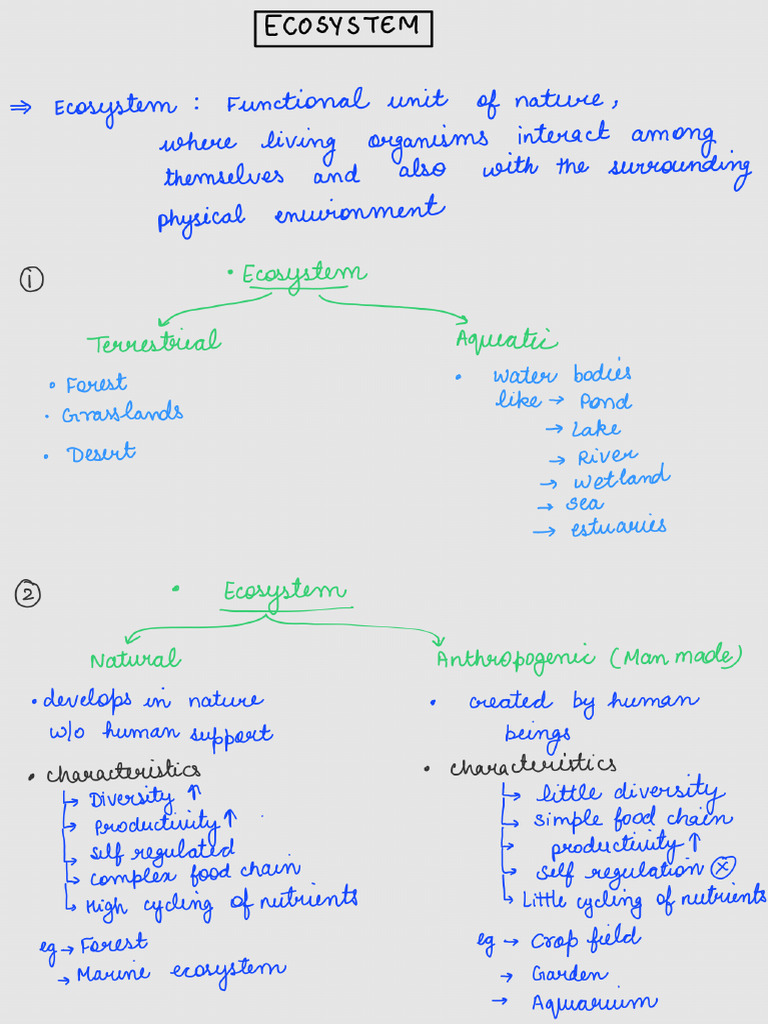 ECOSYSTEM
⇒ Ecosystem : Functional unit of nature,
where living organisms interact among
themselves and also with the surrounding
physical environment
① • Ecosystem
Terrestrial
• Forest
• Grasslands
• Desert
Aquatic
• Water bodies
like → Pond
→ Lake
→ River
→ Wetland
→ Sea
→ estuaries
② • Ecosystem
Natural
• develops in nature
w/o human support
• characteristics
↳ Diversity ↑
↳ Productivity ↑
↳ Self regulated
↳ Complex food chain
↳ High cycling of nutrients
eg → Forest
→ Marine ecosystem
Anthropogenic (Man made)
• created by human
beings
• characteristics
↳ little diversity
↳ simple food chain
↳ productivity ↑
↳ Self regulation ⓧ
↳ Little cycling of nutrients
eg → Crop field
→ Garden
→ Aquarium